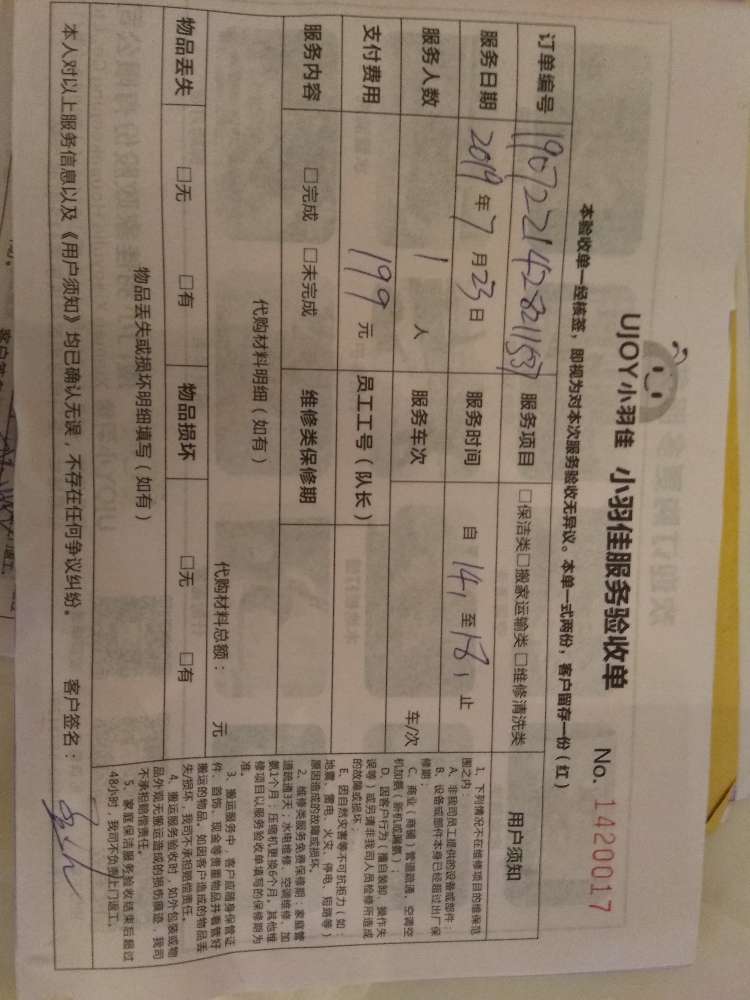 UJOY小羽佳 小羽佳服务验收单 No. 1420017
本验收单一经核签，即视为对本次服务验收无异议。本单一式两份，客户留存一份（红）
订单编号 190722142821153 服务项目 □保洁类□搬家运输类□维修清洗类
服务日期 2019年7月23日 服务时间 自 14, 至 18, 止
服务人数 1 人 服务车次 车/次
支付费用 199 元 员工工号（队长）
服务内容 □完成 □未完成 维修类保修期
代购材料明细（如有） 代购材料总额： 元
物品丢失 □无 □有 物品损坏 □无 □有
物品丢失或损坏明细填写（如有）
本人对以上服务信息以及《用户须知》均已确认无误，不存在任何争议纠纷。 客户签名：
用户须知
1、下列情况不在维修项目的维保范
围之内：
A、非我司员工提供的设备或部件；
B、设备或部件本身已经超过出厂保
修期；
C、商业（商铺）管道疏通、空调空
机加氨（新机或漏氨）；
D、因客户行为（擅自装卸、操作失
误等）或另请非我司人员检修所造成
的故障或损坏；
E、因自然灾害等不可抗拒力（如：
地震、雷电、火灾、停电、短路等）
原因造成的故障或损坏。
2、维修类服务免费保修期：家庭管
道疏通3天；水电维修、空调维修、加
氨1个月；压缩机更换6个月。其他维
修项目以服务验收单填写的保修期为
准。
3、搬运服务中，客户应随身保管证
件、首饰、现金等贵重物品并看管好
搬运的物品。如因客户造成的物品丢
失/损坏，我司不承担赔偿责任。
4、搬运服务验收时，如外包装或物
品外观无搬运造成的损伤痕迹，我司
不承担赔偿责任。
5、家庭保洁服务验收结束后超过
48小时，我司不负责上门返工。